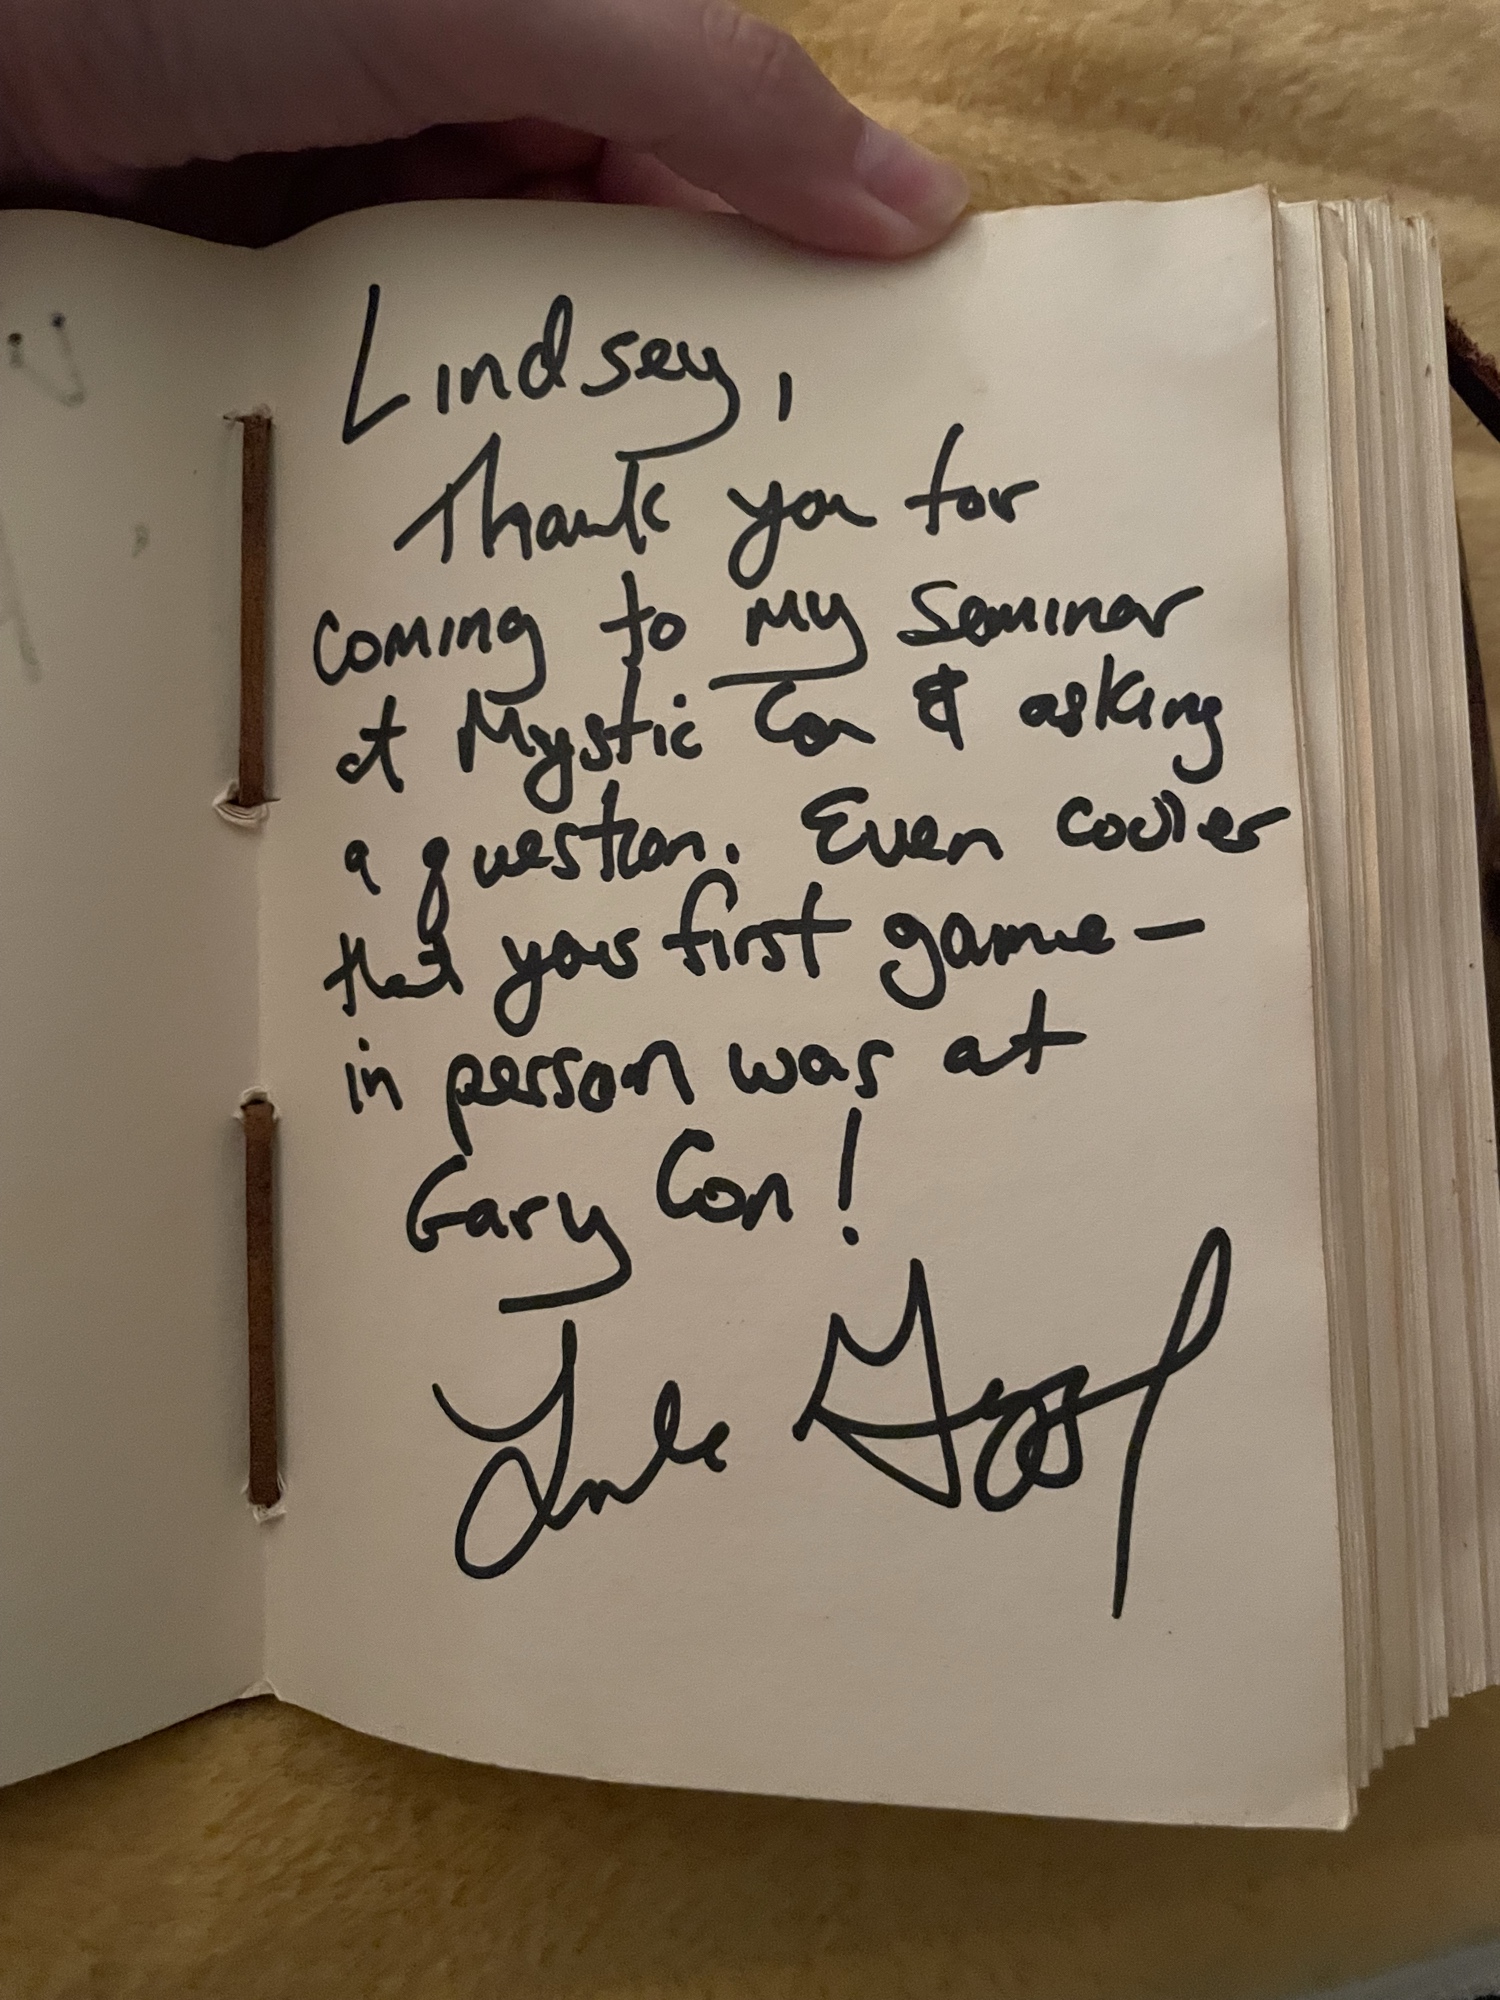 Lindsey,
Thank you for
coming to my Seminar
at Mystic Con & asking
a question. Even cooler
that your first game -
in person was at
Gary Con!
Luke Gygax